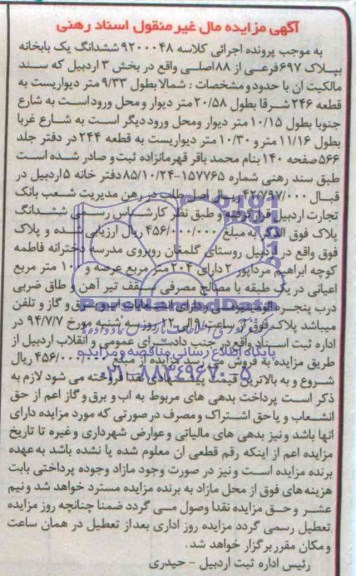 آگهی مزایده مال غیر منقول اسناد رهنی
به موجب پرونده اجرائی کلاسه ۹۲۰۰۰۴۸ ششدانگ یک بابخانه
بپلاک ۶۹۷فرعی از ۸۸اصلی واقع در بخش ۳ اردبیل که سند
مالکیت ان با حدودو مشخصات : شمالا بطول ۹/۳۳ متر دیواریست به
قطعه ۲۴۶ شرقا بطول ۲۰/۵۸ متر دیوار و محل ورود است به شارع
جنوبا بطول ۱۰/۱۵ متر دیوار ومحل ورود دیگر است به شارع غربا
بطول ۱۱/۱۶ متر و ۱۰/۳۰ متر دیواریست به قطعه ۲۴۴ در دفتر جلد
۵۶۶صفحه ۱۴۰ بنام محمد باقر قهرمانزاده ثبت و صادر شده است
طبق سند رهنی شماره ۱۵۷۷۶۵-۸۵/۱۰/۲۴ دفتر خانه ۵ اردبیل در
قبال ۴۲/۷۹۷/۰۰۰ ریال اصل طلب در رهن مدیریت شعب بانک
تجارت اردبیل قرار گرفته و طبق نظر کارشناس رسمی ششدانگ
پلاک فوق الذکر به مبلغ ۴۵۶/۰۰۰/۰۰۰ ریال ارزیابی شده و پلاک
فوق واقع در اردبیل روستای گلمغان روبروی مدرسه دخترانه فاطمه
کوچه ابراهیم مردانپور دارای ۲۰۴ متر مربع عرصه و ۱۰۰ متر مربع
اعیانی در یک طبقه با مصالح مصرفی سقف تیر آهن و طاق ضربی
درب پنجره آلومینیومی و دارای انشعابات آب برق و گاز و تلفن
میباشد پلاک فوق از ساعت ۹ الی ۱۲ روز سه شنبه مورخ ۹۴/۷/۷ در
اداره ثبت اسناد واقع در جنب دادسرای عمومی و انقلاب اردبیل از
طریق مزایده به فروش می رسد مزایده از مبلغ ۴۵۶/۰۰۰/۰۰۰ ریال
شروع و به بالاترین قیمت پیشنهادی نقدا فروخته می شود لازم به
ذکر است پرداخت بدهی های مربوط به اب و برق و گاز اعم از حق
انشعاب و یا حق اشتراک و مصرف در صورتی که مورد مزایده دارای
انها باشد و نیز بدهی های مالیاتی و عوارض شهرداری و غیره تا تاریخ
مزایده اعم از اینکه رقم قطعی ان معلوم شده یا نشده باشد به عهده
برنده مزایده است و نیز در صورت وجود مازاد وجوه پرداختی بابت
هزینه های فوق از محل مازاد به برنده مزایده مسترد خواهد شد و نیم
عشر و حق مزایده نقدا وصول می گردد ضمنا چنانچه روز مزایده
تعطیل رسمی گردد مزایده روز اداری بعد از تعطیل در همان ساعت
و مکان مقرر برگزار خواهد شد.
رئیس اداره ثبت اردبیل - حیدری
ParsNamadData
پایگاه اطلاع رسانی مناقصه و مزایده
۰۲۱-۸۸۳۴۹۶۷۰-۵